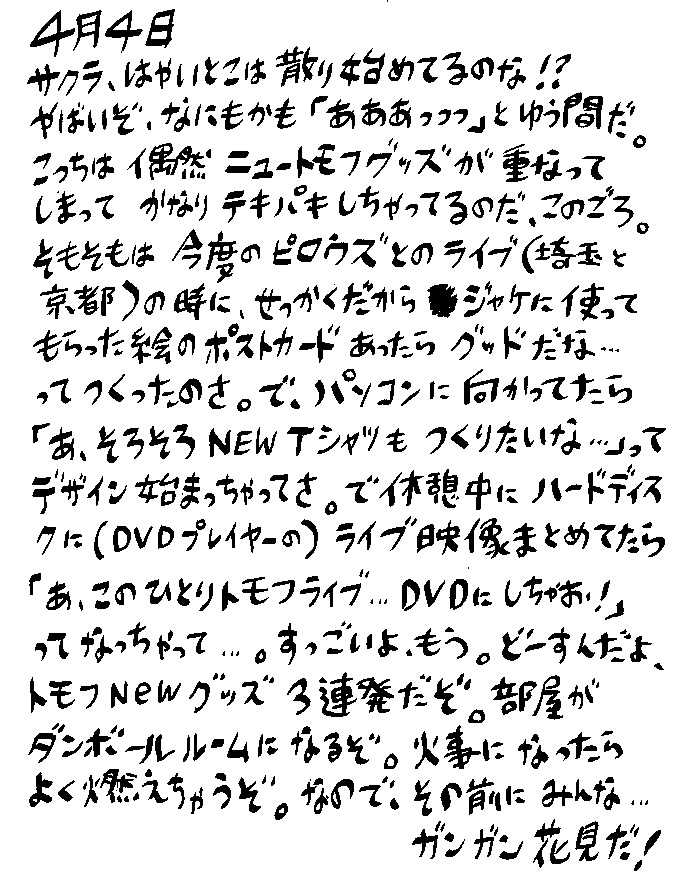 4月4日
サクラ、はやいとこは散り始めてるのな!?
やばいぞ、なにもかも「あああっっっ」とゆう間だ。
こっちは 偶然 ニュートモフグッズが 重なって
しまって かなり テキパキしちゃってるのだ、このごろ。
そもそもは 今度の ピロウズとの ライブ(埼玉と
京都)の時に、せっかくだから ジャケに使って
もらった絵の ポストカード あったら グッドだな…
ってつくったのさ。で、パソコンに向かってたら
「あ、そろそろ NEW Tシャツも つくりたいな…」って
デザイン始まっちゃってさ。で休憩中に ハードディス
クに(DVDプレイヤーの)ライブ映像まとめてたら
「あ、このひとりトモフライブ…DVDにしちゃお!」
ってなっちゃって…。すっごいよ、もう。どーすんだよ、
トモフNeWグッズ 3連発だぞ。部屋が
ダンボールルームになるぞ。火事になったら
よく燃えちゃうぞ。なので、その前に みんな…
ガンガン花見だ!